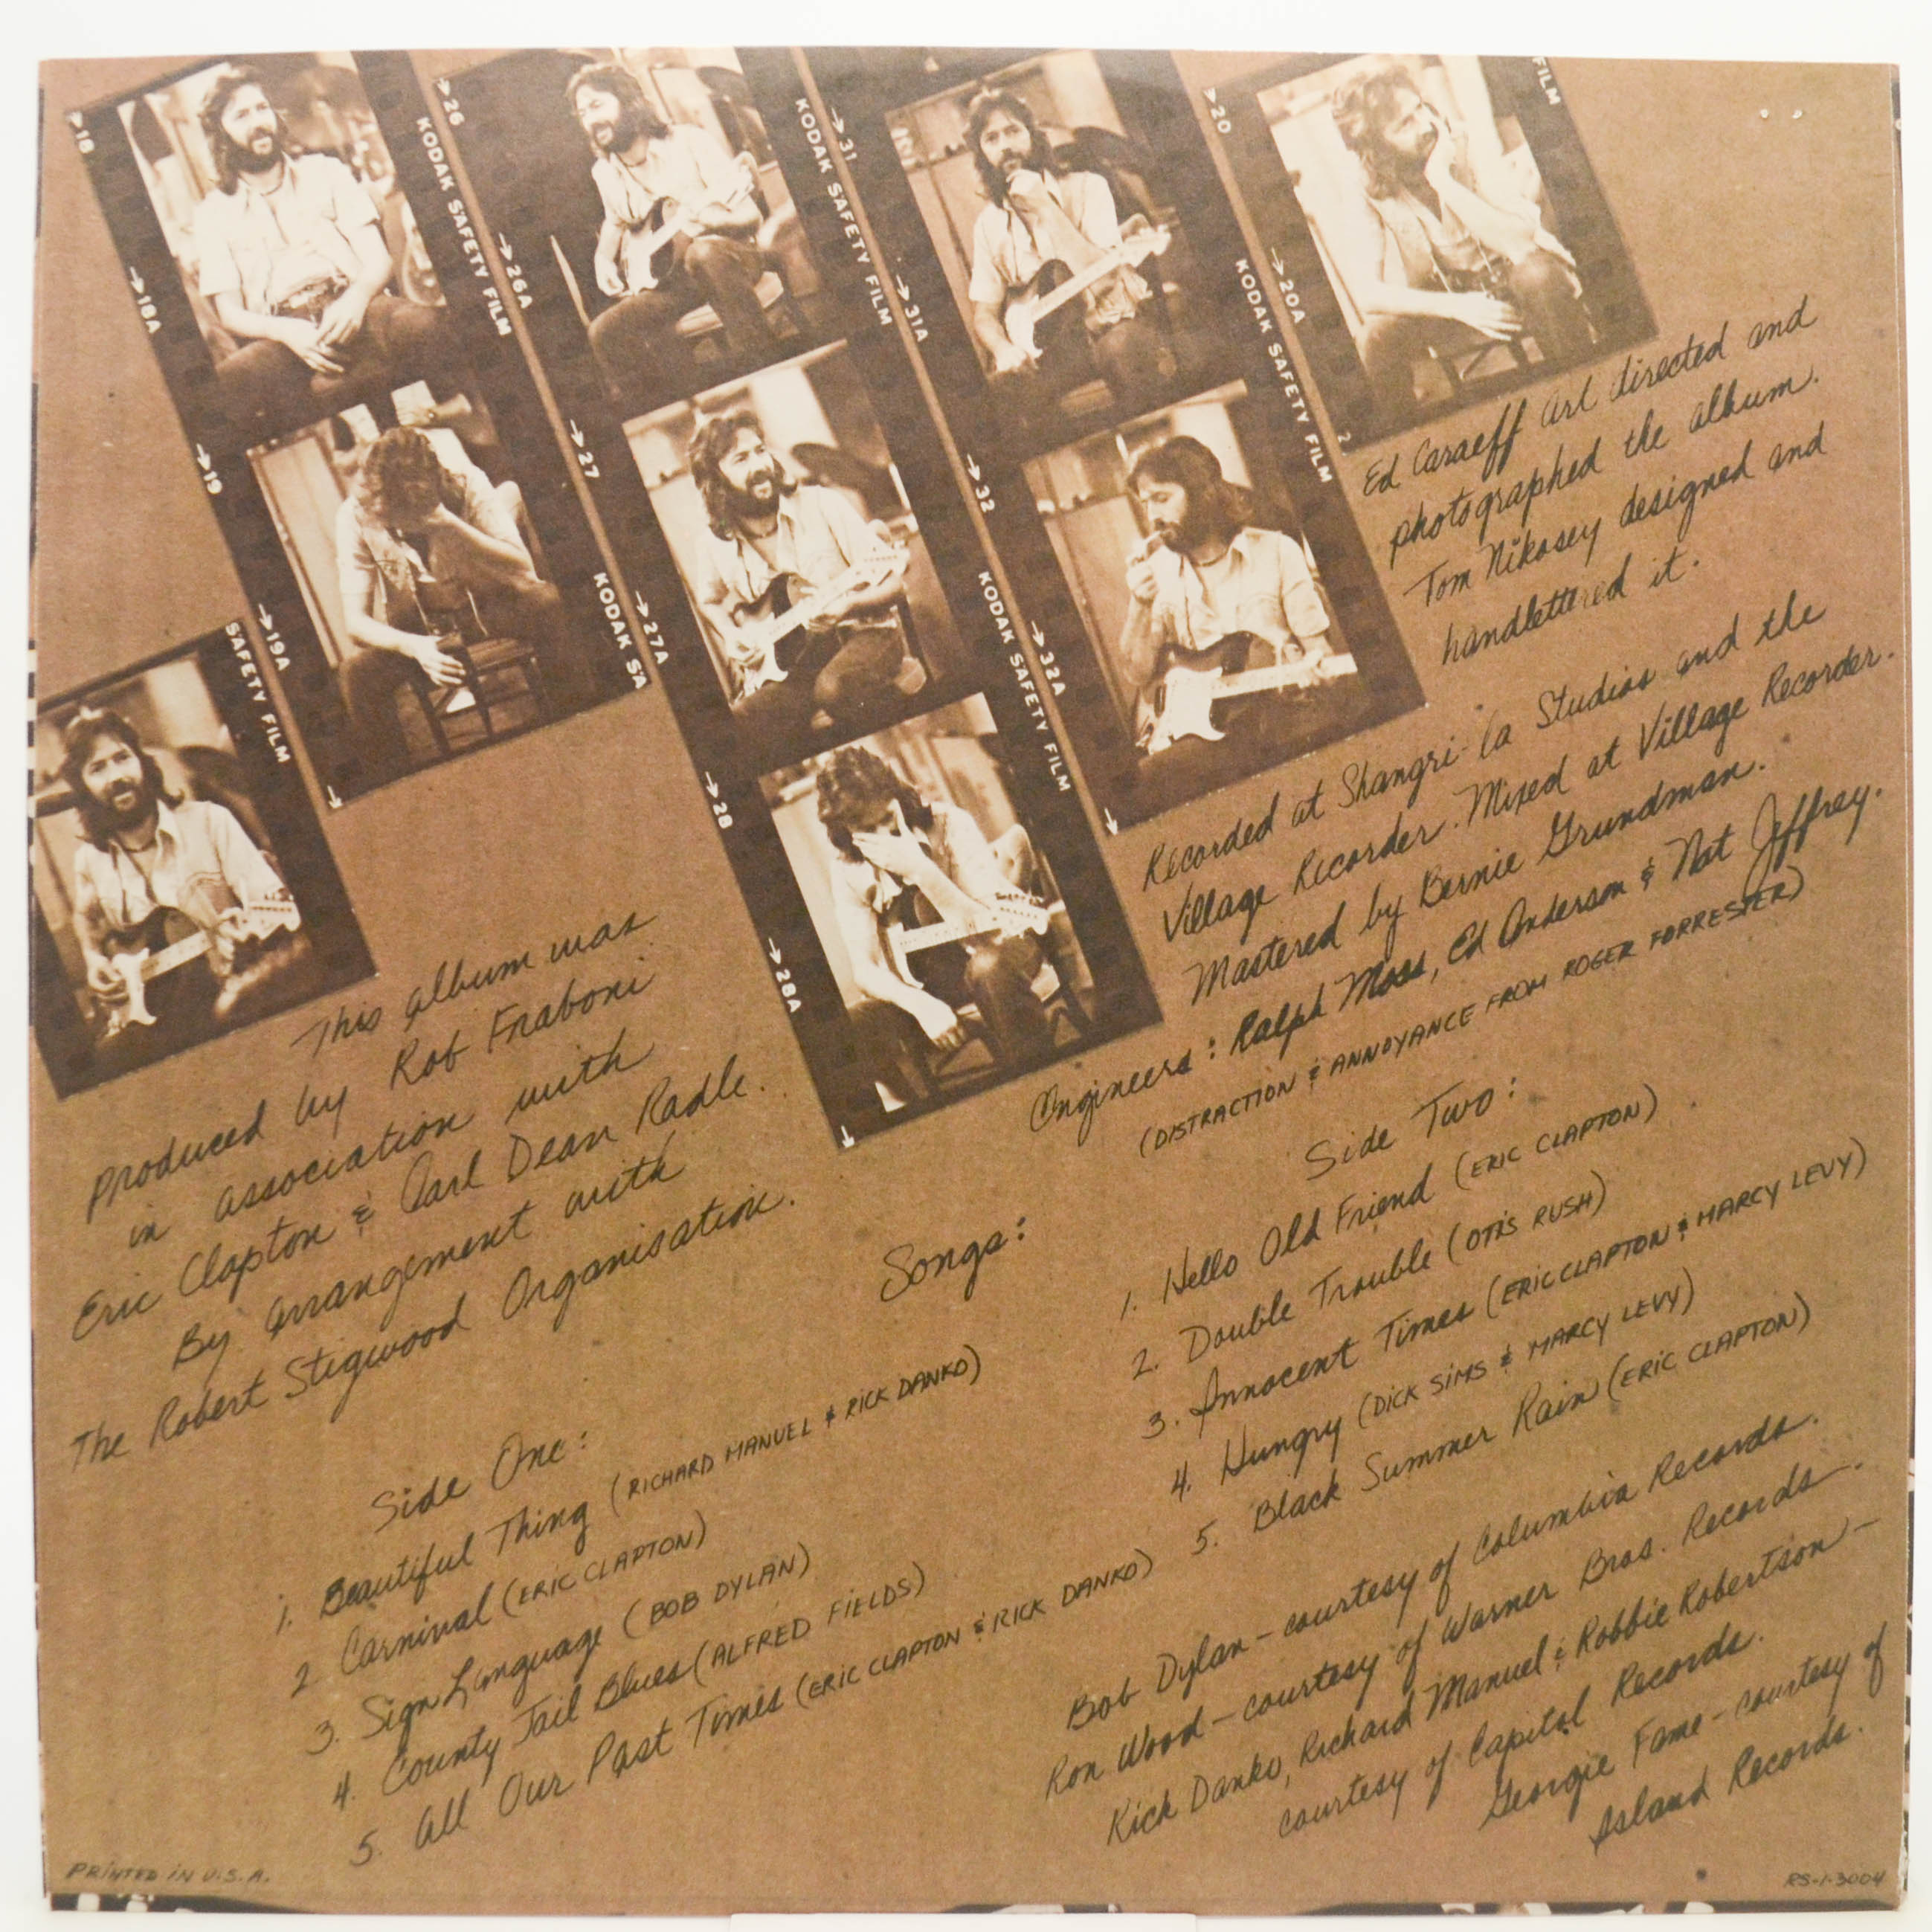 →18
→18A
→19
→19A
SAFETY FILM
→26
KODAK SAFETY FILM
→26A
→27
KODAK SA
→27A
→28
→28A
→31
KODAK SAFETY FILM
→31A
→32
KODAK SAFETY FILM
→32A
→20
KODAK SAFETY FILM
→20A
2
FILM
Ed Caraeff art directed and
photographed the album.
Tom Nikosey designed and
handlettered it.
Recorded at Shangri-la Studios and the
Village Recorder. Mixed at Village Recorder.
Mastered by Bernie Grundman.
Engineers: Ralph Moss, Ed Anderson & Nat Jeffrey.
(DISTRACTION & ANNOYANCE FROM ROGER FORRESTER)
This album was
produced by Rob Fraboni
in association with
Eric Clapton & Carl Dean Radle.
By arrangement with
The Robert Stigwood Organisation.
Songs:
Side One:
1. Beautiful Thing (RICHARD MANUEL & RICK DANKO)
2. Carnival (ERIC CLAPTON)
3. Sign Language (BOB DYLAN)
4. County Jail Blues (ALFRED FIELDS)
5. All Our Past Times (ERIC CLAPTON & RICK DANKO)
Side Two:
1. Hello Old Friend (ERIC CLAPTON)
2. Double Trouble (OTIS RUSH)
3. Innocent Times (ERIC CLAPTON & MARCY LEVY)
4. Hungry (DICK SIMS & MARCY LEVY)
5. Black Summer Rain (ERIC CLAPTON)
Bob Dylan - courtesy of Columbia Records.
Ron Wood - courtesy of Warner Bros. Records.
Rick Danko, Richard Manuel & Robbie Robertson -
courtesy of Capitol Records.
Georgie Fame - courtesy of
Island Records.
PRINTED IN U.S.A.
RS-1-3004